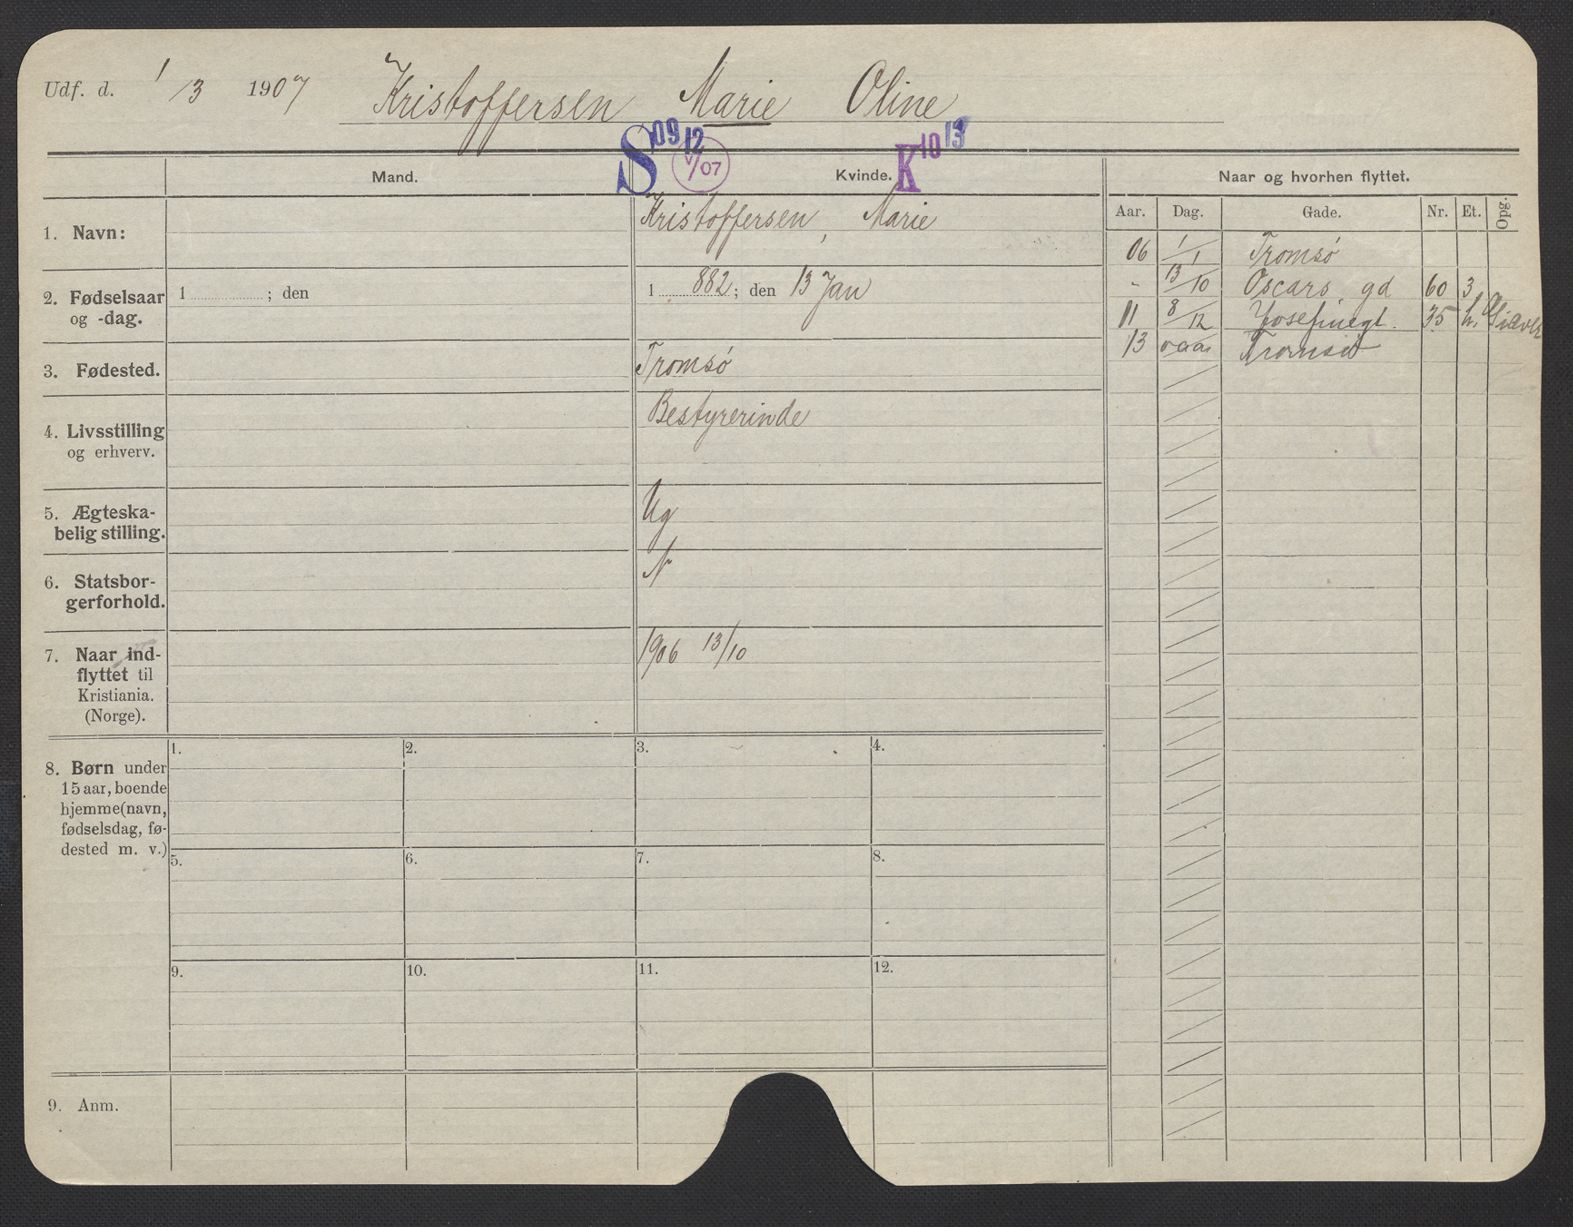 Udf. d. 1/3 1907 Kristoffersen Marie Oline
S 09 12 V/07 K 10 13
Mand. Kvinde. Naar og hvorhen flyttet.
Aar. Dag. Gade. Nr. Et. Opg.
1. Navn: Kristoffersen, Marie
06 1/1 Tromsø
2. Fødselsaar og -dag. 1 ; den 1 882; den 13 Jan
" 13/10 Oscars gd 60 3
11 8/12 Josefinegt. 35 h.
13 Tromsø
3. Fødested. Tromsø
4. Livsstilling og erhverv. Bestyrerinde
5. Ægteska-
belig stilling. Ug
6. Statsbor-
gerforhold. N
7. Naar ind-
flyttet til
Kristiania.
(Norge).
1906 13/10
8. Børn under
15 aar, boende
hjemme (navn,
fødselsdag, fø-
dested m. v.)
1. 2. 3. 4.
5. 6. 7. 8.
9. 10. 11. 12.
9. Anm.